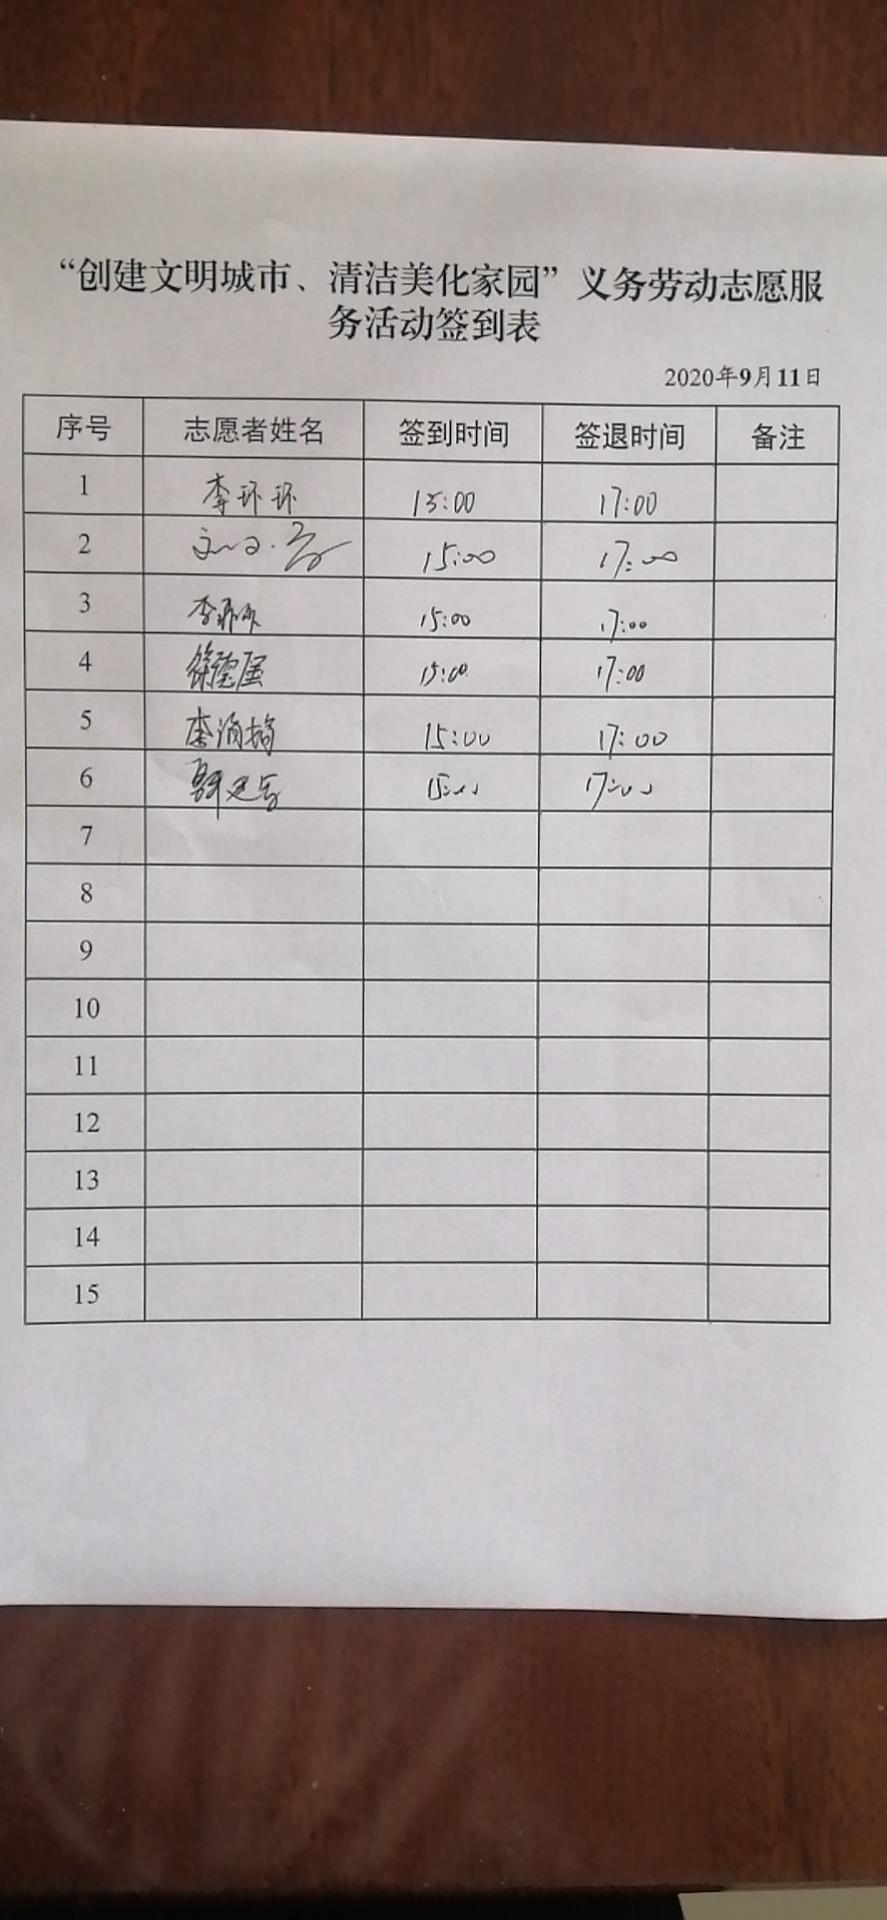 “创建文明城市、清洁美化家园”义务劳动志愿服
务活动签到表
2020年9月11日
序号 志愿者姓名 签到时间 签退时间 备注
1 李环环 15:00 17:00
2 15:00 17:00
3 15:00 17:00
4 徐德厚 15:00 17:00
5 15:00 17:00
6 15:00 17:00
7
8
9
10
11
12
13
14
15